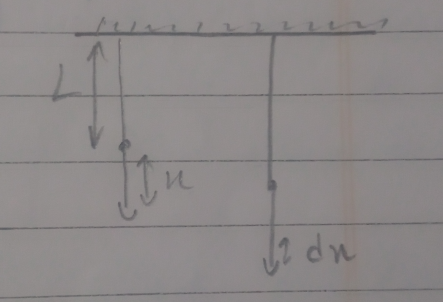 L
x
dx